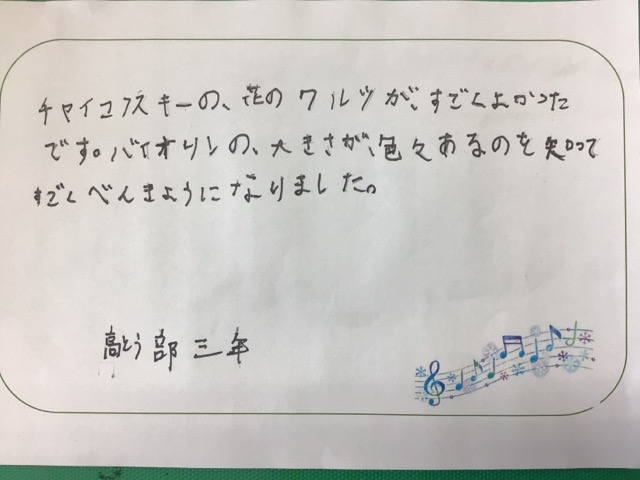 チャイコフスキーの、花のワルツが、すごくよかった
です。バイオリンの、大きさが、色々あるのを知って
すごくべんきょうになりました。
高とう部三年